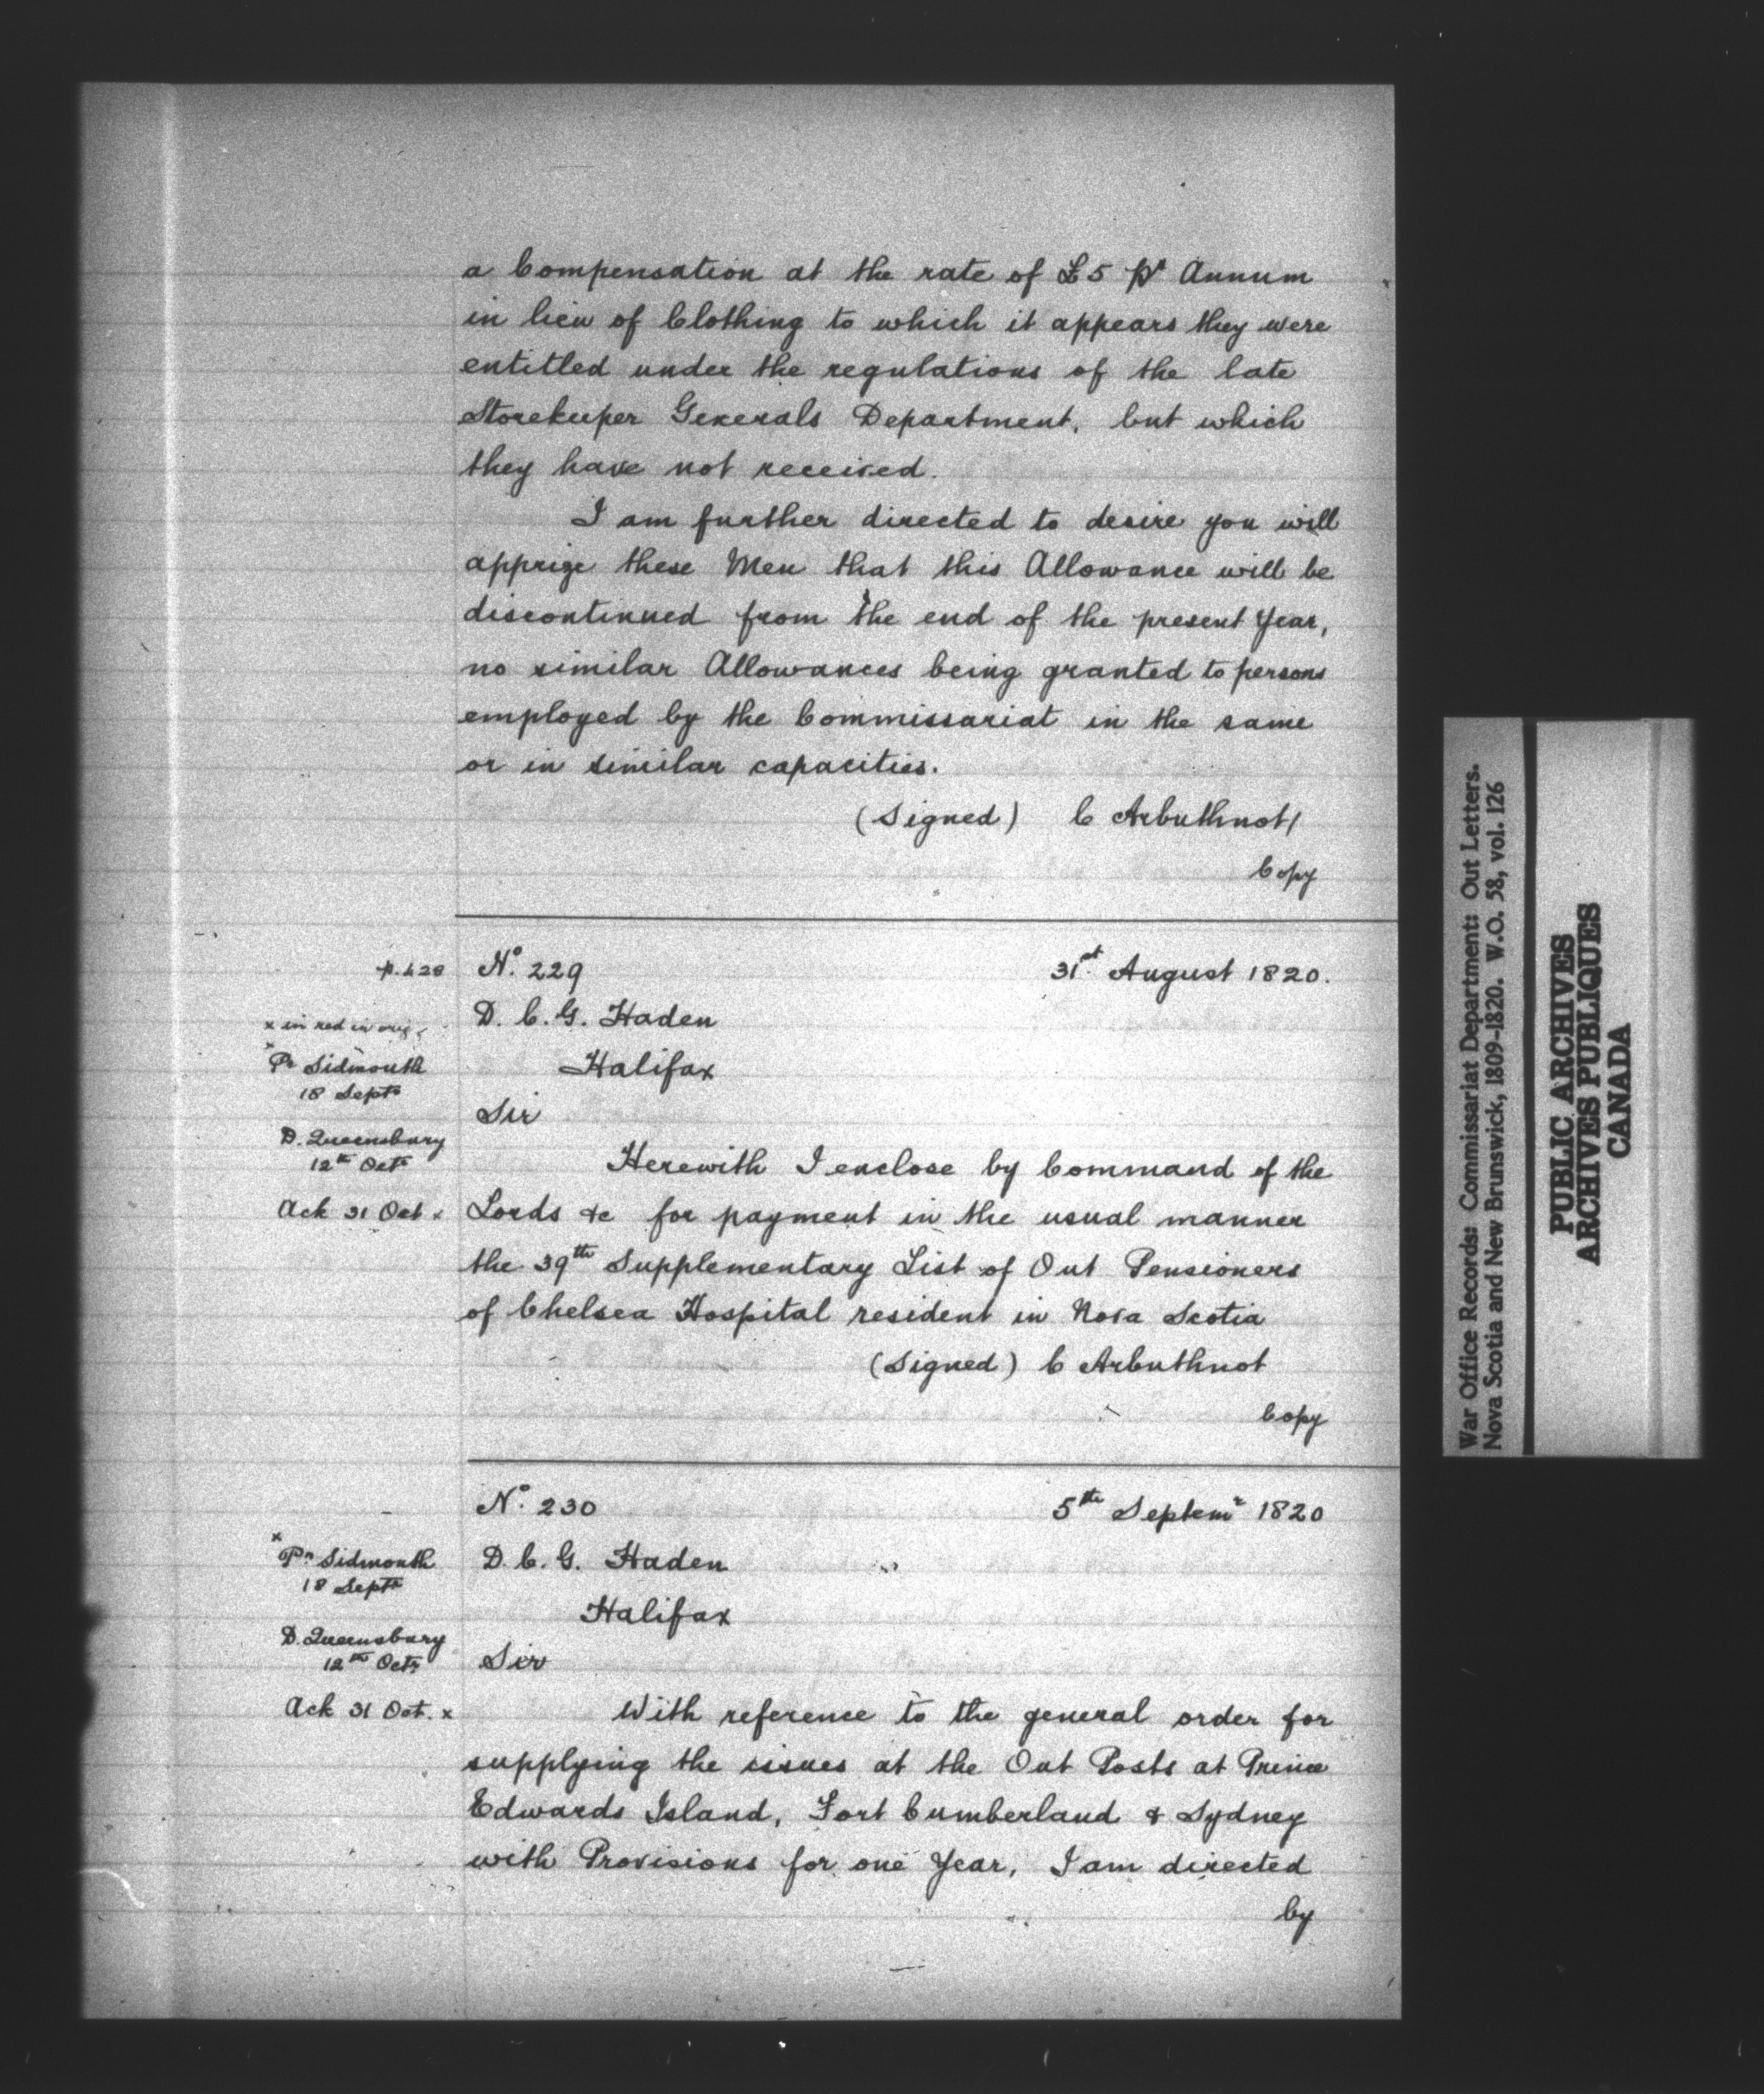 a Compensation at the rate of £5 pr Annum
in lieu of Clothing to which it appears they were
entitled under the regulations of the late
Storekeeper Generals Department, but which
they have not received.
I am further directed to desire you will
apprize these Men that this Allowance will be
discontinued from the end of the present Year,
no similar Allowances being granted to persons
employed by the Commissariat in the same
or in similar capacities.
(Signed) C Arbuthnot/
Copy
p. 428
No. 229
31st August 1820.
x in red in orig.
D. C. G. Haden
Halifax
x Pr Sidmouth
18 Septr
Sir
D. Queensbury
12th Octr
Ack 31 Oct x
Herewith I enclose by Command of the
Lords &c for payment in the usual manner
the 39th Supplementary List of Out Pensioners
of Chelsea Hospital resident in Nova Scotia
(Signed) C Arbuthnot
Copy
No. 230
5th Septemr 1820
x Pr Sidmouth
18 Septr
D. C. G. Haden
Halifax
D. Queensbury
12th Octr
Sir
Ack 31 Oct. x
With reference to the general order for
supplying the issues at the Out Posts at Prince
Edwards Island, Fort Cumberland & Sydney
with Provisions for one Year, I am directed
by
War Office Records: Commissariat Department: Out Letters.
Nova Scotia and New Brunswick, 1809-1820. W.O. 58, vol. 126
PUBLIC ARCHIVES
ARCHIVES PUBLIQUES
CANADA